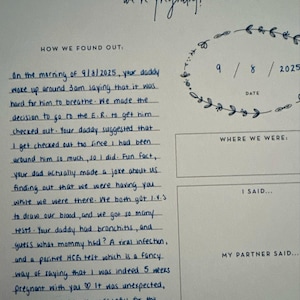 we're pregnant!
HOW WE FOUND OUT:
On the morning of 9/8/2025, your daddy
woke up around 3am saying that it was
hard for him to breathe. We made the
decision to go to the E.R. to get him
checked out. Your daddy suggested that
I get checked out too since I had been
around him so much, so I did. Fun fact,
your dad actually made a joke about us
finding out that we were having you
while we were there. We both got I.V.s
to draw our blood, and we got so many
tests. Your daddy had bronchitis, and
guess what mommy had? A viral infection,
and a positive HCG test which is a fancy
way of saying that I was indeed 5 weeks
pregnant with you ♡ It was unexpected,
for the
9 / 8 / 2025
DATE
WHERE WE WERE:
I SAID...
MY PARTNER SAID...